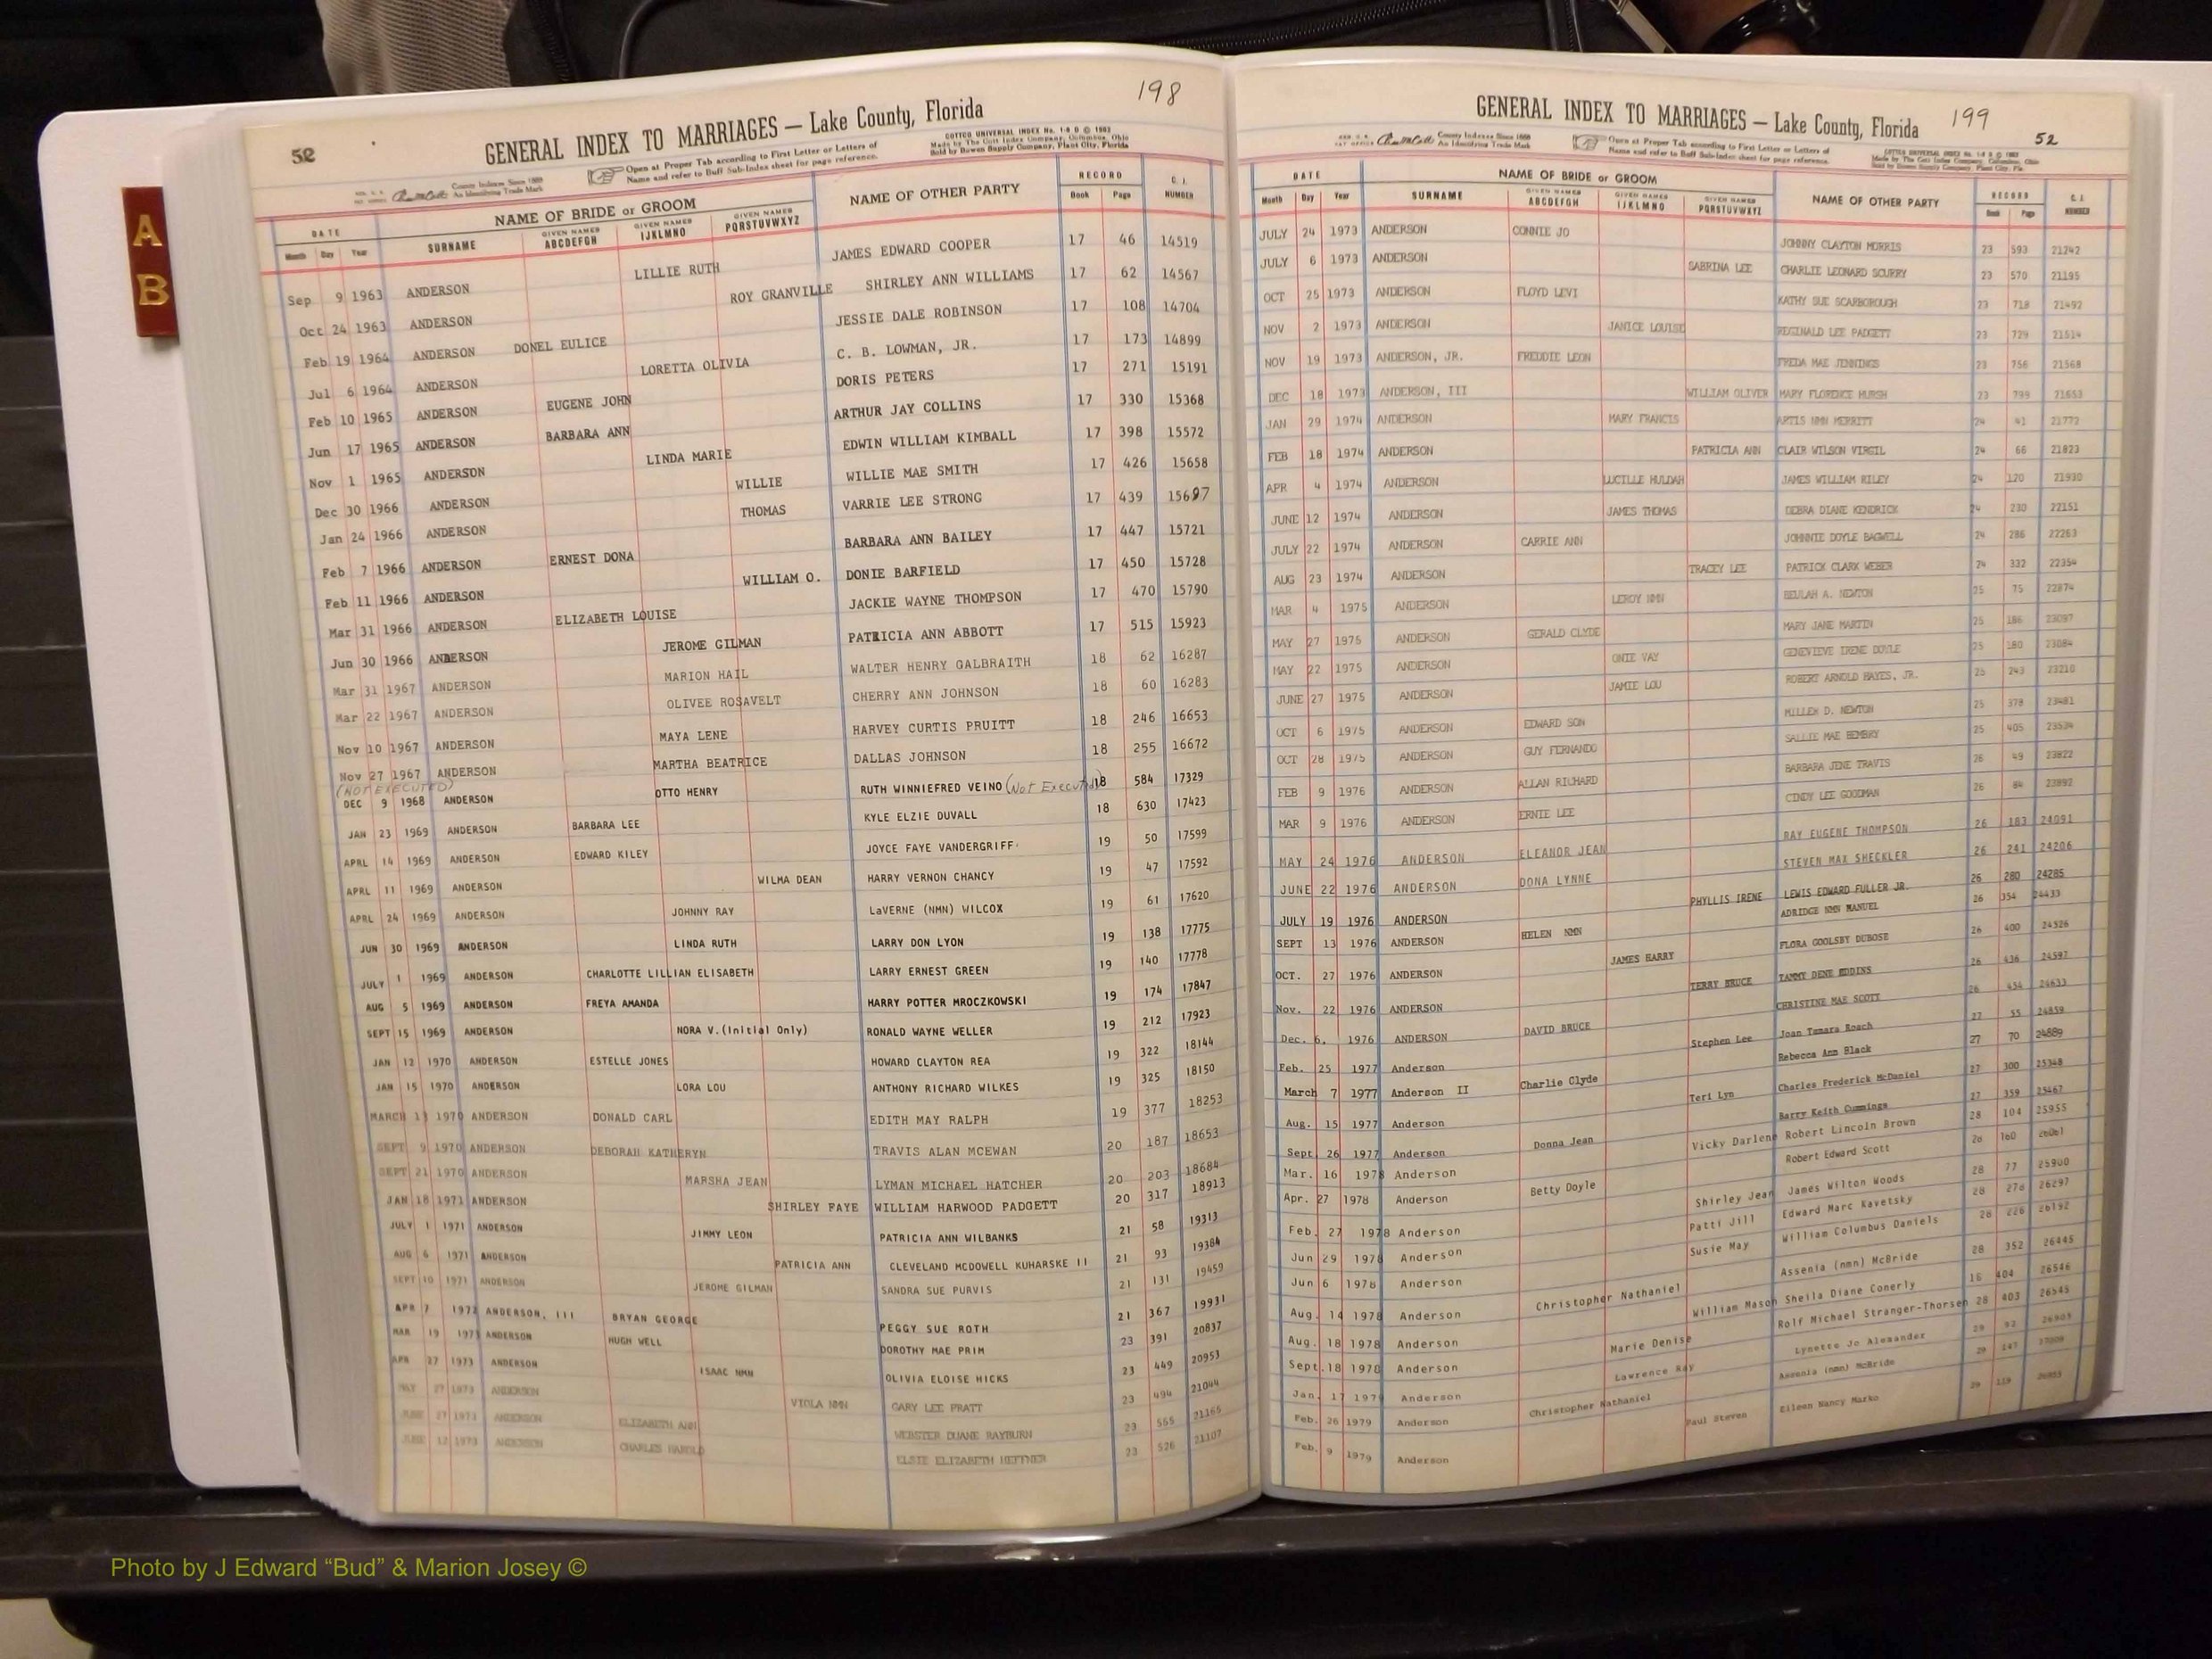 A
B
52
198
GENERAL INDEX TO MARRIAGES — Lake County, Florida
COTTCO UNIVERSAL INDEX No. 1-8 D © 1963
Made by The Cott Index Company, Columbus, Ohio
Sold by Bowen Supply Company, Plant City, Florida
County Indexes Since 1888
An Identifying Trade Mark
Open at Proper Tab according to First Letter or Letters of
Name and refer to Buff Sub-Index sheet for page reference.
DATE NAME OF BRIDE or GROOM NAME OF OTHER PARTY RECORD C. I. NUMBER
Month Day Year SURNAME GIVEN NAMES ABCDEFGH GIVEN NAMES IJKLMNO GIVEN NAMES PQRSTUVWXYZ Book Page
Sep 9 1963 ANDERSON LILLIE RUTH JAMES EDWARD COOPER 17 46 14519
Oct 24 1963 ANDERSON ROY GRANVILLE SHIRLEY ANN WILLIAMS 17 62 14567
Feb 19 1964 ANDERSON DONEL EULICE JESSIE DALE ROBINSON 17 108 14704
Jul 6 1964 ANDERSON LORETTA OLIVIA C. B. LOWMAN, JR. 17 173 14899
Feb 10 1965 ANDERSON EUGENE JOHN DORIS PETERS 17 271 15191
Jun 17 1965 ANDERSON BARBARA ANN ARTHUR JAY COLLINS 17 330 15368
Nov 1 1965 ANDERSON LINDA MARIE EDWIN WILLIAM KIMBALL 17 398 15572
Dec 30 1966 ANDERSON WILLIE WILLIE MAE SMITH 17 426 15658
Jan 24 1966 ANDERSON THOMAS VARRIE LEE STRONG 17 439 15697
Feb 7 1966 ANDERSON ERNEST DONA BARBARA ANN BAILEY 17 447 15721
Feb 11 1966 ANDERSON WILLIAM O. DONIE BARFIELD 17 450 15728
Mar 31 1966 ANDERSON ELIZABETH LOUISE JACKIE WAYNE THOMPSON 17 470 15790
Jun 30 1966 ANDERSON JEROME GILMAN PATRICIA ANN ABBOTT 17 515 15923
Mar 31 1967 ANDERSON MARION HAIL WALTER HENRY GALBRAITH 18 62 16287
Mar 22 1967 ANDERSON OLIVEE ROSAVELT CHERRY ANN JOHNSON 18 60 16283
Nov 10 1967 ANDERSON MAYA LENE HARVEY CURTIS PRUITT 18 246 16653
Nov 27 1967 ANDERSON MARTHA BEATRICE DALLAS JOHNSON 18 255 16672
(NOT EXECUTED)
DEC 9 1968 ANDERSON OTTO HENRY RUTH WINNIEFRED VEINO (Not Executed) 18 584 17329
JAN 23 1969 ANDERSON BARBARA LEE KYLE ELZIE DUVALL 18 630 17423
APRL 14 1969 ANDERSON EDWARD KILEY JOYCE FAYE VANDERGRIFF 19 50 17599
APRL 11 1969 ANDERSON WILMA DEAN HARRY VERNON CHANCY 19 47 17592
APRL 24 1969 ANDERSON JOHNNY RAY LaVERNE (NMN) WILCOX 19 61 17620
JUN 30 1969 ANDERSON LINDA RUTH LARRY DON LYON 19 138 17775
JULY 1 1969 ANDERSON CHARLOTTE LILLIAN ELISABETH LARRY ERNEST GREEN 19 140 17778
AUG 5 1969 ANDERSON FREYA AMANDA HARRY POTTER MROCZKOWSKI 19 174 17847
SEPT 15 1969 ANDERSON NORA V.(Initial Only) RONALD WAYNE WELLER 19 212 17923
JAN 12 1970 ANDERSON ESTELLE JONES HOWARD CLAYTON REA 19 322 18144
JAN 15 1970 ANDERSON LORA LOU ANTHONY RICHARD WILKES 19 325 18150
MARCH 13 1970 ANDERSON DONALD CARL EDITH MAY RALPH 19 377 18253
SEPT 9 1970 ANDERSON DEBORAH KATHERYN TRAVIS ALAN MCEWAN 20 187 18653
SEPT 21 1970 ANDERSON MARSHA JEAN LYMAN MICHAEL HATCHER 20 203 18684
JAN 18 1971 ANDERSON SHIRLEY FAYE WILLIAM HARWOOD PADGETT 20 317 18913
JULY 1 1971 ANDERSON JIMMY LEON PATRICIA ANN WILBANKS 21 58 19313
AUG 6 1971 ANDERSON PATRICIA ANN CLEVELAND MCDOWELL KUHARSKE II 21 93 19384
SEPT 10 1971 ANDERSON JEROME GILMAN SANDRA SUE PURVIS 21 131 19459
APR 7 1972 ANDERSON, III BRYAN GEORGE PEGGY SUE ROTH 21 367 19931
MAR 19 1973 ANDERSON HUGH WELL DOROTHY MAE PRIM 23 391 20837
APR 27 1973 ANDERSON ISAAC NMN OLIVIA ELOISE HICKS 23 449 20953
MAY 27 1973 ANDERSON VIOLA NMN GARY LEE PRATT 23 494 21044
JUNE 27 1973 ANDERSON ELIZABETH ANN WEBSTER DUANE RAYBURN 23 555 21165
JUNE 12 1973 ANDERSON CHARLES HAROLD ELSIE ELIZABETH HEFFNER 23 526 21107
GENERAL INDEX TO MARRIAGES — Lake County, Florida
199
52
County Indexes Since 1888
An Identifying Trade Mark
Open at Proper Tab according to First Letter or Letters of
Name and refer to Buff Sub-Index sheet for page reference.
DATE NAME OF BRIDE or GROOM NAME OF OTHER PARTY RECORD C. I. NUMBER
Month Day Year SURNAME GIVEN NAMES ABCDEFGH GIVEN NAMES IJKLMNO GIVEN NAMES PQRSTUVWXYZ Book Page
JULY 24 1973 ANDERSON CONNIE JO JOHNNY CLAYTON MORRIS 23 593 21242
JULY 6 1973 ANDERSON SABRINA LEE CHARLIE LEONARD SCURRY 23 570 21195
OCT 25 1973 ANDERSON FLOYD LEVI KATHY SUE SCARBOROUGH 23 718 21492
NOV 2 1973 ANDERSON JANICE LOUISE REGINALD LEE PADGETT 23 729 21514
NOV 19 1973 ANDERSON, JR. FREDDIE LEON FREDA MAE JENNINGS 23 756 21568
DEC 18 1973 ANDERSON, III WILLIAM OLIVER MARY FLORENCE HURSH 23 799 21653
JAN 29 1974 ANDERSON MARY FRANCIS ARTIS NMN MERRITT 24 41 21772
FEB 18 1974 ANDERSON PATRICIA ANN CLAIR WILSON VIRGIL 24 66 21823
APR 4 1974 ANDERSON LUCILLE HULDAH JAMES WILLIAM RILEY 24 120 21930
JUNE 12 1974 ANDERSON JAMES THOMAS DEBRA DIANE KENDRICK 24 230 22151
JULY 22 1974 ANDERSON CARRIE ANN JOHNNIE DOYLE BAGWELL 24 286 22263
AUG 23 1974 ANDERSON TRACEY LEE PATRICK CLARK WEBER 24 332 22354
MAR 4 1975 ANDERSON LEROY NMN BEULAH A. NEWTON 25 75 22874
MAY 27 1975 ANDERSON GERALD CLYDE MARY JANE MARTIN 25 186 23097
MAY 22 1975 ANDERSON ONIE VAY GENEVIEVE IRENE DOYLE 25 180 23084
JUNE 27 1975 ANDERSON JAMIE LOU ROBERT ARNOLD HAYES, JR. 25 243 23210
OCT 6 1975 ANDERSON EDWARD SON MILLEN D. NEWTON 25 378 23481
OCT 28 1975 ANDERSON GUY FERNANDO SALLIE MAE BEMBRY 25 405 23534
FEB 9 1976 ANDERSON ALLAN RICHARD BARBARA JENE TRAVIS 26 49 23822
MAR 9 1976 ANDERSON ERNIE LEE CINDY LEE GOODMAN 26 84 23892
MAY 24 1976 ANDERSON ELEANOR JEAN RAY EUGENE THOMPSON 26 183 24091
JUNE 22 1976 ANDERSON DONA LYNNE STEVEN MAX SHECKLER 26 241 24206
JULY 19 1976 ANDERSON PHYLLIS IRENE LEWIS EDWARD FULLER JR. 26 280 24285
SEPT 13 1976 ANDERSON HELEN NMN ADRIDGE NMN MANUEL 26 354 24433
OCT. 27 1976 ANDERSON JAMES HARRY FLORA GOOLSBY DUBOSE 26 400 24526
Nov. 22 1976 ANDERSON TERRY BRUCE TAMMY DENE EDDINS 26 436 24597
Dec. 6, 1976 ANDERSON DAVID BRUCE CHRISTINE MAE SCOTT 26 454 24633
Feb. 25 1977 Anderson Stephen Lee Joan Tamara Roach 27 55 24859
March 7 1977 Anderson II Charlie Clyde Rebecca Ann Black 27 70 24889
Aug. 15 1977 Anderson Teri Lyn Charles Frederick McDaniel 27 300 25348
Sept 26 1977 Anderson Donna Jean Barry Keith Cummings 27 359 25467
Mar. 16 1978 Anderson Vicky Darlene Robert Lincoln Brown 28 104 25955
Apr. 27 1978 Anderson Betty Doyle Robert Edward Scott 28 160 26061
Feb. 27 1978 Anderson Shirley Jean James Wilton Woods 28 77 25900
Jun 29 1978 Anderson Patti Jill Edward Marc Kavetsky 28 278 26297
Jun 6 1978 Anderson Susie May William Columbus Daniels 28 226 26192
Aug. 14 1978 Anderson Christopher Nathaniel Assenia (nmn) McBride 28 352 26445
Aug. 18 1978 Anderson William Mason Sheila Diane Conerly 18 404 26546
Sept. 18 1978 Anderson Marie Denise Rolf Michael Stranger-Thorsen 28 403 26545
Jan. 17 1979 Anderson Lawrence Ray Lynette Jo Alexander 29 92
Feb. 26 1979 Anderson Christopher Nathaniel Assenia (nmn) McBride 29 147
Feb. 9 1979 Anderson Paul Steven Eileen Nancy Marko 29 119
Photo by J Edward “Bud” & Marion Josey ©